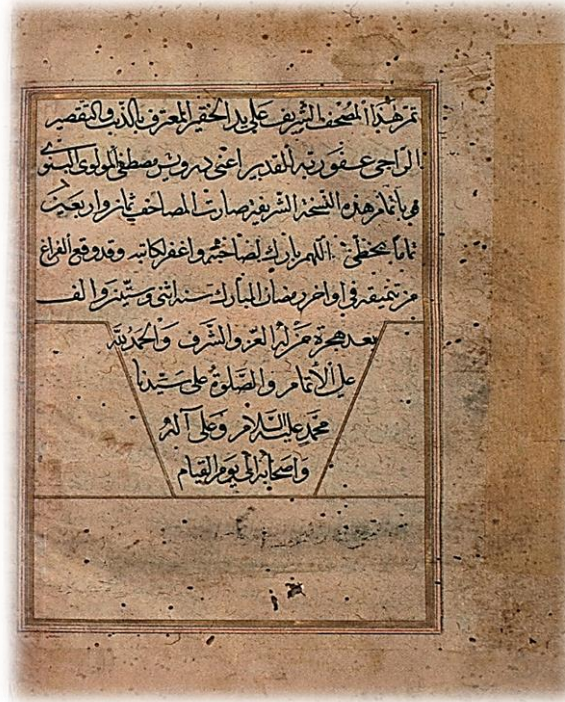 تم هذا المصحف الشريف على يد الحقير المعترف بالذنب والتقصير
الراجي عفو ربه القدير اعنى درويش مصطفى المولوى
وباتمام هذه النسخة الشريفة صارت المصاحف ثمان واربعين
تماما بخطى اللهم بارك لصاحبه واغفر لكاتبه وقد وقع الفراغ
من تنميقه فى اواخر رمضان المبارك سنة اثنى وستين والف
بعد هجرة من له العز والشرف والحمد لله
على الاتمام والصلوة على سيدنا
محمد عليه السلام وعلى آله
واصحابه الى يوم القيام